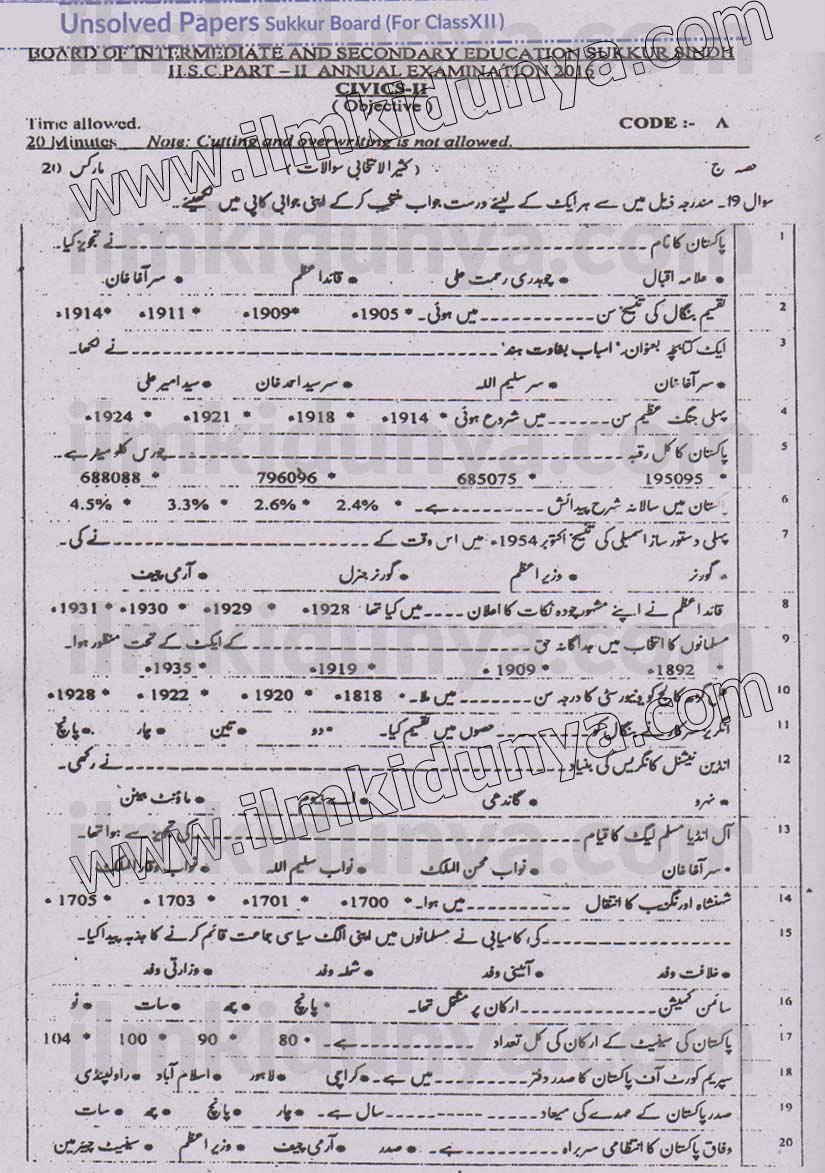 Unsolved Papers Sukkur Board (For ClassXII)
BOARD OF INTERMEDIATE AND SECONDARY EDUCATION SUKKUR SINDH
H.S.C.PART – II ANNUAL EXAMINATION 2016
CIVICS-II
( Objective )
Time allowed. CODE :- A
20 Minutes Note: Cutting and overwriting is not allowed.
حصہ ج (کثیر الانتخابی سوالات) مارکس 20
سوال 19۔ مندرجہ ذیل میں سے ہر ایک کے لیئے درست جواب منتخب کرکے اپنی جوابی کاپی میں لکھیئے۔
1 پاکستان کا نام ــــــــــــــــ نے تجویز کیا۔
• علامہ اقبال • چوہدری رحمت علی • قائد اعظم • سر آغا خان
2 تقسیم بنگال کی تنسیخ سن ـــــــــ میں ہوئی۔ * 1905ء * 1909ء * 1911ء * 1914ء
3 ایک کتابچہ بعنوان۔ "اسباب بغاوت ہند" ــــــــــــــــ نے لکھا۔
• سر آغا خان • سر سلیم اللہ • سر سید احمد خان • سید امیر علی
4 پہلی جنگ عظیم سن ــــــــ میں شروع ہوئی * 1914ء * 1918ء * 1921ء * 1924ء
5 پاکستان کا کل رقبہ ــــــــــــــــ چورس کلو میٹر ہے۔
* 195095 * 685075 * 796096 * 688088
6 پاکستان میں سالانہ شرح پیدائش ــــــــ ہے۔ * 2.4% * 2.6% * 3.3% * 4.5%
7 پہلی دستور ساز اسمبلی کی تنسیخ اکتوبر 1954ء میں اس وقت کے ــــــــــــــــ نے کی۔
• گورنر • وزیر اعظم • گورنر جنرل • آرمی چیف
8 قائد اعظم نے اپنے مشہور چودہ نکات کا اعلان ــــــــ میں کیا تھا 1928ء * 1929ء * 1930ء * 1931ء
9 مسلمانوں کا انتخاب میں جداگانہ حق ــــــــــــــــ کے ایکٹ کے تحت منظور ہوا۔
* 1892ء * 1909ء * 1919ء * 1935ء
10 کالج کو یونیورسٹی کا درجہ سن ــــــــ میں ملا۔ • 1818ء * 1920ء * 1922ء * 1928ء
11 انگریز سرکار نے بنگال کو ــــــــ حصوں میں تقسیم کیا۔ • دو • تین • چار • پانچ
12 انڈین نیشنل کانگریس کی بنیاد ــــــــــــــــ نے رکھی۔
• نہرو • گاندھی • • ماؤنٹ بیٹن
13 آل انڈیا مسلم لیگ کا قیام ــــــــــــــــ کی تجویز سے ہوا تھا۔
• سر آغا خان • نواب محسن الملک • نواب سلیم اللہ • نواب وقار الملک
14 شہنشاہ اورنگزیب کا انتقال ــــــــ میں ہوا۔ * 1700ء * 1701ء * 1703ء * 1705ء
15 ــــــــــــــــ کی کامیابی نے مسلمانوں میں اپنی الگ سیاسی جماعت قائم کرنے کا جذبہ پیدا کیا۔
• خلافت وفد • آئینی وفد • شملہ وفد • وزارتی وفد
16 سائمن کمیشن ــــــــ ارکان پر مشتمل تھا۔ • پانچ • چھ • سات • نو
17 پاکستان کی سینیٹ کے ارکان کی کل تعداد ــــــــ ہے۔ • 80 * 90 * 100 * 104
18 سپریم کورٹ آف پاکستان کا صدر دفتر ــــــــ میں ہے۔ • کراچی • لاہور • اسلام آباد • راولپنڈی
19 صدر پاکستان کے عہدے کی میعاد ــــــــ سال ہے۔ • چار • پانچ • چھ • سات
20 وفاق پاکستان کا انتظامی سربراہ ــــــــ ہے۔ • صدر • آرمی چیف • وزیر اعظم • سینیٹ چیئرمین
www.ilmkidunya.com
www.ilmkidunya.com
ilmkidunya.com